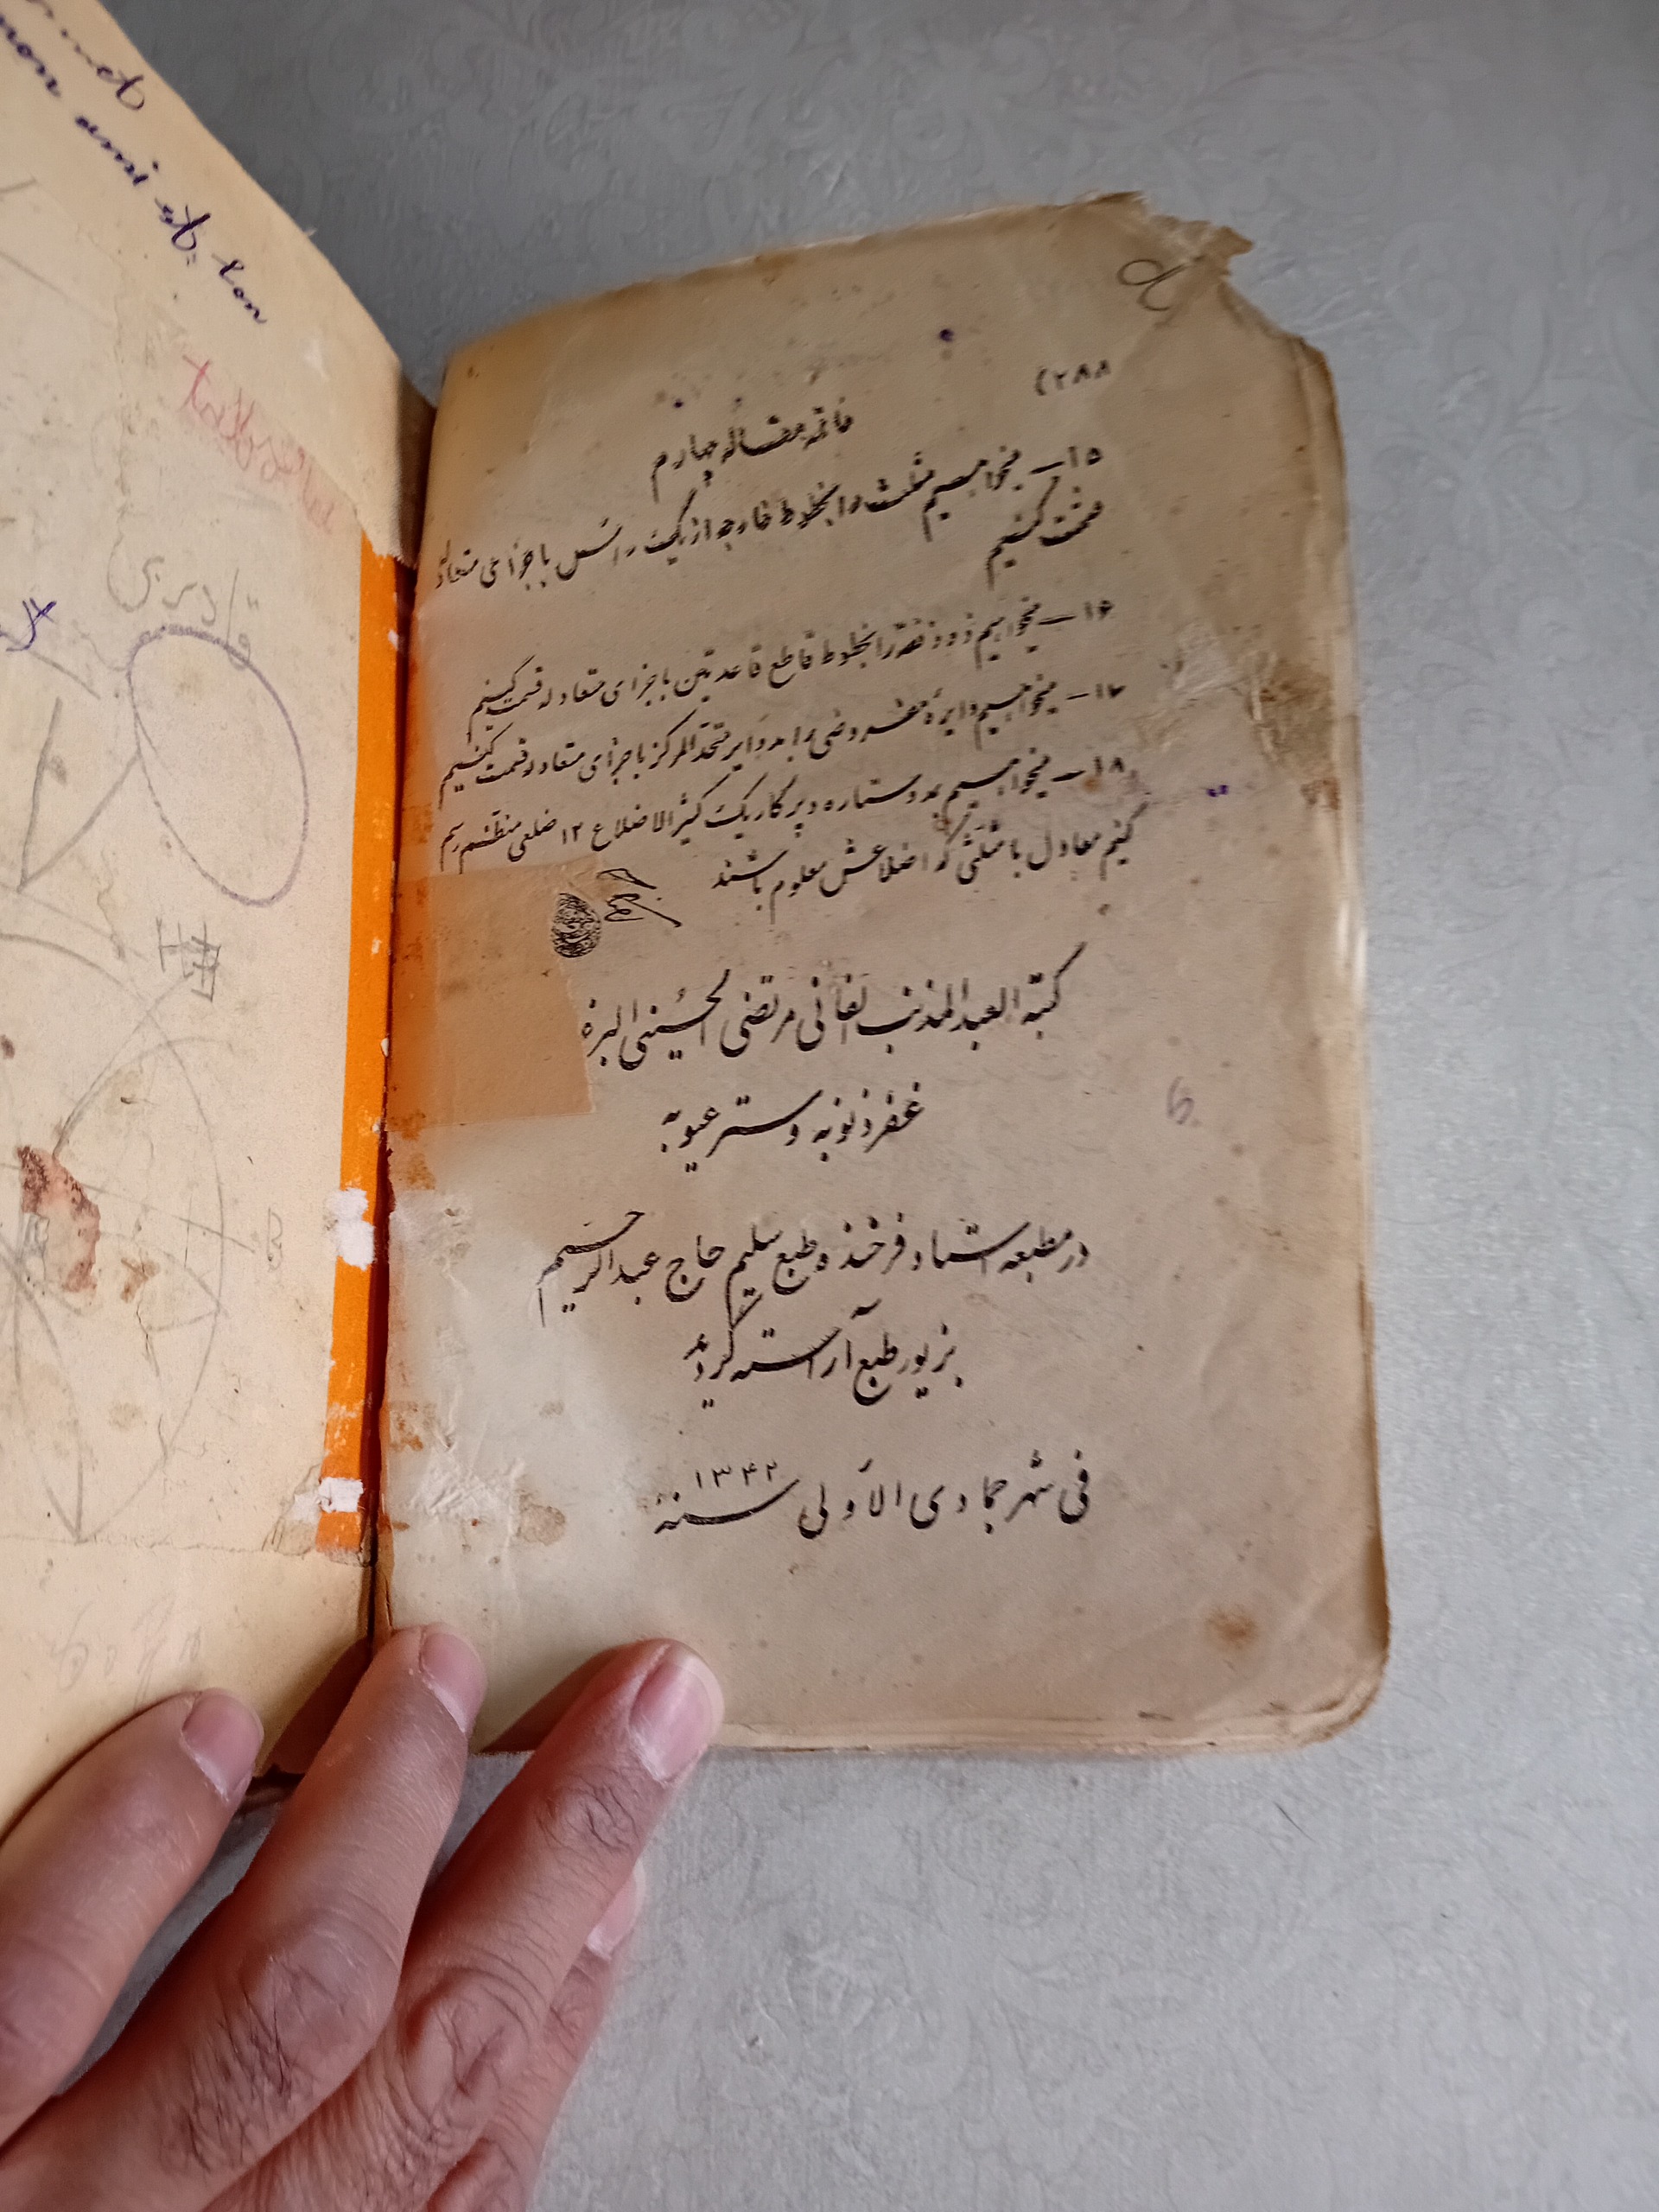 mon ami et ton
قادری
(۲۸۸
خاتمه مقاله چهارم
۱۵ــ میخواهیم مثلث را بخطوط خارجه از یک رأسش باجزای متعادله
قسمت کنیم
۱۶ــ میخواهیم ذوذنقه را بخطوط قاطع قاعدتین باجزای متعادله قسمت کنیم
۱۷ــ میخواهیم دایرهٔ مفروضی را بدوایر متحدالمرکز باجزای متعادله قسمت کنیم
۱۸ــ میخواهیم بدستاره و پرگار یک کثیرالاضلاع ۱۲ ضلعی منتظم رسم
کنیم معادل با مثلثی که اضلاعش معلوم باشند
کتبه العبد المذنب الفانی مرتضی الحسینی البرز
غفر ذنوبه و ستر عیوبه
در مطبعه استاد فرخنده طبع سلیم حاج عبدالرحیم
بزیور طبع آراسته گردید
فی شهر جمادی الاولی سنهٔ ۱۳۴۲